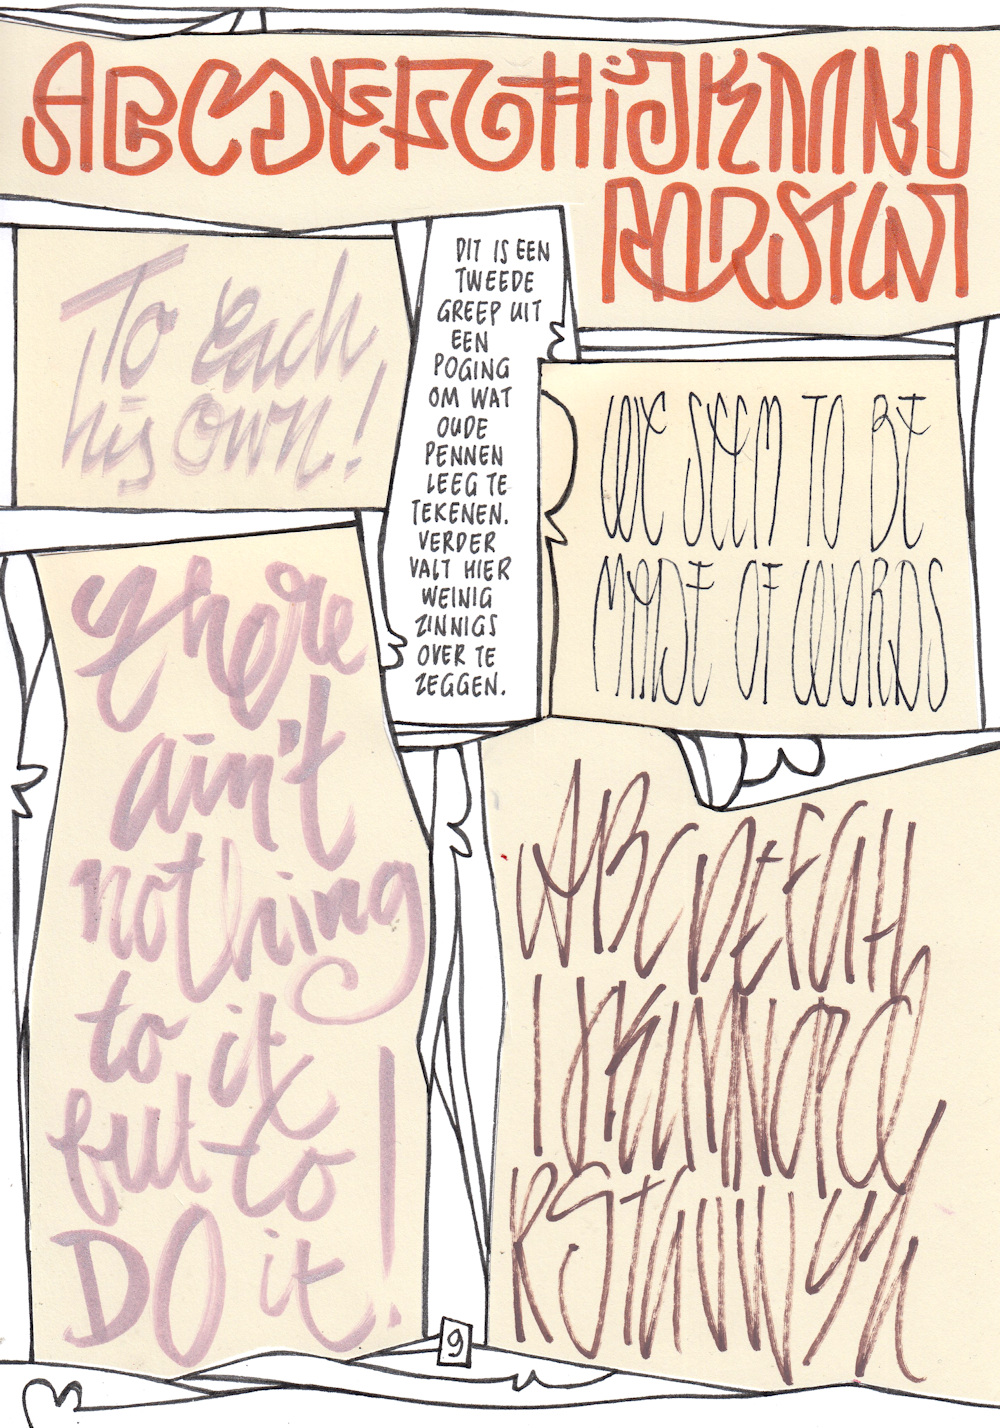 ABCDEFGHIJKMNO
PQRSTUV
To each
his own!
DIT IS EEN
TWEEDE
GREEP UIT
EEN
POGING
OM WAT
OUDE
PENNEN
LEEG TE
TEKENEN.
VERDER
VALT HIER
WEINIG
ZINNIGS
OVER TE
ZEGGEN.
WE SEEM TO BE
MADE OF WORDS
There
ain't
nothing
to it
but to
DO it!
ABCDEFGH
IJKLMNOPQ
RSTUVWYZ
9